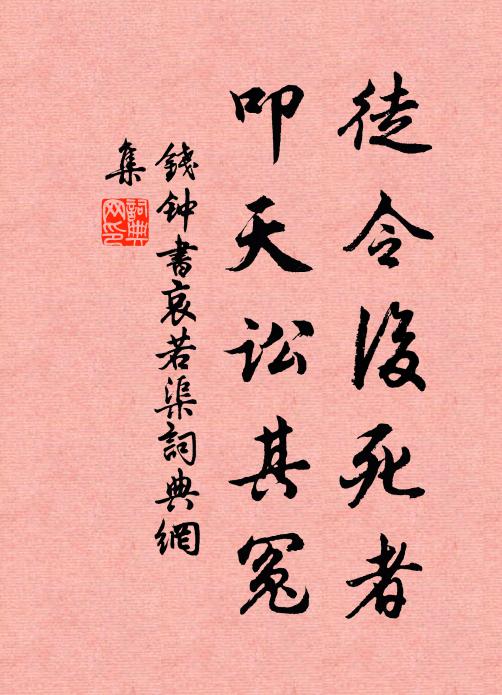 徒令後死者
叩天訟其冤
錢钟書哀若渠詞典網
集
詞典網印